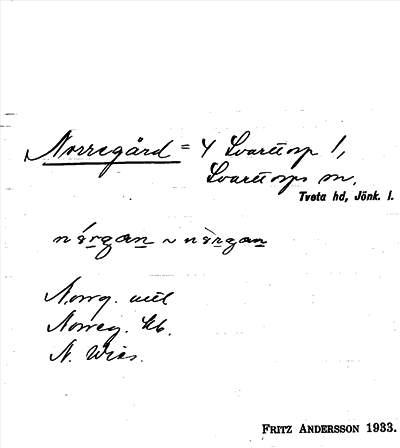 Norregård = 4 Svarttorp 1,
Svarttorps sn,
Tveta hd, Jönk. l.
nérgan ~ nèrgan
Norrg.
Norreg. kb.
N. Wies.
FRITZ ANDERSSON 1933.